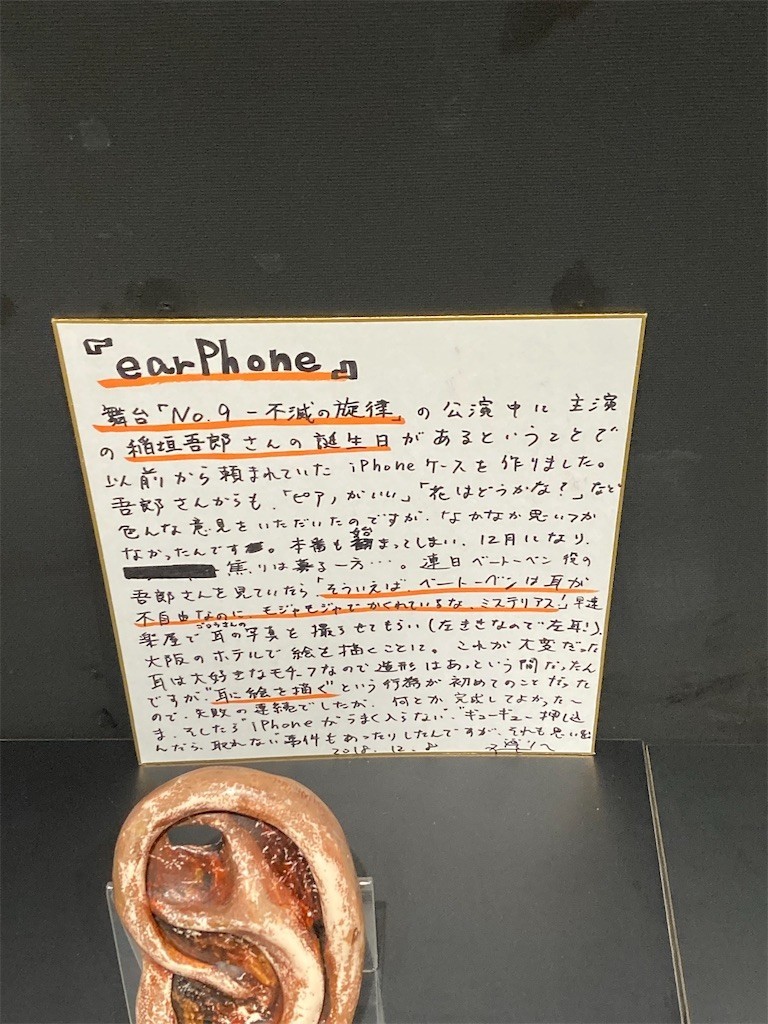 『earPhone』
舞台「No.9 －不滅の旋律」の公演中に主演
の稲垣吾郎さんの誕生日があるということで
以前から頼まれていた iPhoneケースを作りました。
吾郎さんからも、「ピアノがいい」「花はどうかな?」など
色んな意見をいただいたのですが、なかなか思いつか
なかったんです。本番も始まってしまい、12月になり、
焦りは募る一方…。連日ベートーベン役の
吾郎さんを見ていたら「そういえば、ベートーベンは耳が
不自由なのに、モジャモジャでかくれているな、ミステリアス!」早速
楽屋でゴロウさんの耳の写真を撮らせてもらい(左ききなので左耳!)、
大阪のホテルで絵を描くことに。これが大変だった
耳は大好きなモチーフなので造形はあっという間だったん
ですが、"耳に絵を描く"という行為が初めてのことだった
ので、失敗の連続でしたが、何とか完成してよかった〜
ま、そしたらiPhoneがうまく入らない、ギューギュー押し込
んだら、取れない事件もあったりしたんですが、それも思い出
2018.12.8